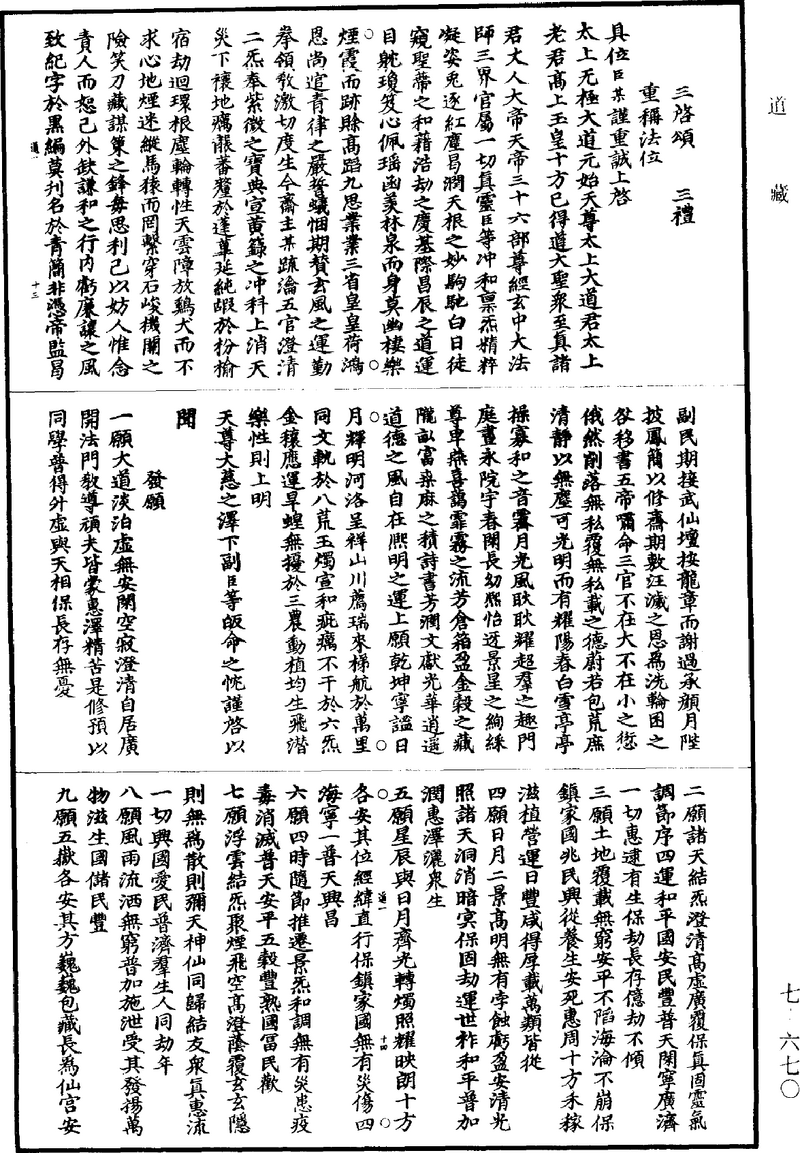 道藏
三啓頌　三禮
重稱法位
具位臣某謹重誠上啓
太上无極大道元始天尊太上大道君太上
老君高上玉皇十方已得道大聖衆至真諸
君丈人大帝天帝三十六部尊經玄中大法
師三界官屬一切真靈臣等冲和禀炁精粹
凝姿兎逐紅塵曷潤天根之妙駒馳白日徒
窺聖蒂之和藉浩劫之慶基際昌辰之道運
目躭瓊笈心佩瑶函羡林泉而身莫幽棲樂
煙霞而跡賒高蹈九思業業三省皇皇荷鴻
恩尚逭青律之嚴誓蟻悃期賛玄風之運勤
拳領敎激切度生今齋主某疏淪五官澄清
二炁奉紫微之寶典宣黃籙之冲科上消天
災下禳地癘脤蕃釐於蓬蓽延純嘏於枌榆
宿劫迴環根塵輪轉性天雲障放鷄犬而不
求心地煙迷縱馬猿而罔繫穿石峻機關之
險笑刀藏謀策之鋒每思利己以妨人惟念
責人而恕己外缺謙和之行内虧廉讓之風
致紀字於黑編莫刋名於青簡非憑帝監曷
道一
十三
副民期接武仙壇按龍章而謝過承顔月陛
披鳳簡以修齋期敷汪濊之恩爲洗輪囷之
咎移書五帝嘯命三官不在大不在小之愆
俄然削落無私覆無私載之德蔚若包荒庶
清静以無塵可光明而有耀陽春白雪亭亭
操寡和之音霽月光風耿耿耀超羣之趣門
庭晝永院宇春閑長幼熈怡迓景星之絢綵
尊卑燕喜藹霏霧之流芳倉箱盈金榖之藏
隴畝富桒麻之積詩書芳潤文獻光華逍遥
道德之風自在熈明之運上願乾坤寧謐日
月輝明河洛呈祥山川薦瑞來梯航於萬里
同文軌於八荒玉燭宣和疵癘不干於六炁
金穰應運旱蝗無擾於三農動植均生飛潜
樂性則上明
天尊大慈之澤下副臣等皈命之忱謹啓以
聞
發願
一願大道淡泊虚無安閑空寂澄清自居廣
開法門敎導頑夫皆蒙惠澤精苦是修預以
同學普得外虚與天相保長存無憂
二願諸天結炁澄清高虚廣覆保真固靈氣
調節序四運和平國安民豐普天閑寧廣濟
一切惠逮有生保劫長存億劫不傾
三願土地覆載無窮安平不陷海淪不崩保
鎮家國兆民興從養生安死惠周十方禾稼
滋植營運日豐咸得厚載萬類皆從
四願日月二景高明無有孛蝕虧盈安清光
照諸天洞消暗㝠保固劫運世祚和平普加
潤惠澤灑衆生
五願星辰與日月齊光轉燭照耀映朗十方
各安其位經緯直行保鎮家國無有災傷四
道一
十四
海寧一普天興昌
六願四時隨節推遷景炁和調無有災患疫
毒消滅普天安平五穀豐熟國冨民歡
七願浮雲結炁聚煙飛空高澄蔭覆玄玄隱
則無爲散則彌天神仙同歸結友衆真惠流
一切興國愛民普濟羣生人同劫年
八願風雨流洒無窮普加施泄受其發揚萬
物滋生國儲民豐
九願五嶽各安其方巍巍包藏長爲仙宫安
七·六七〇